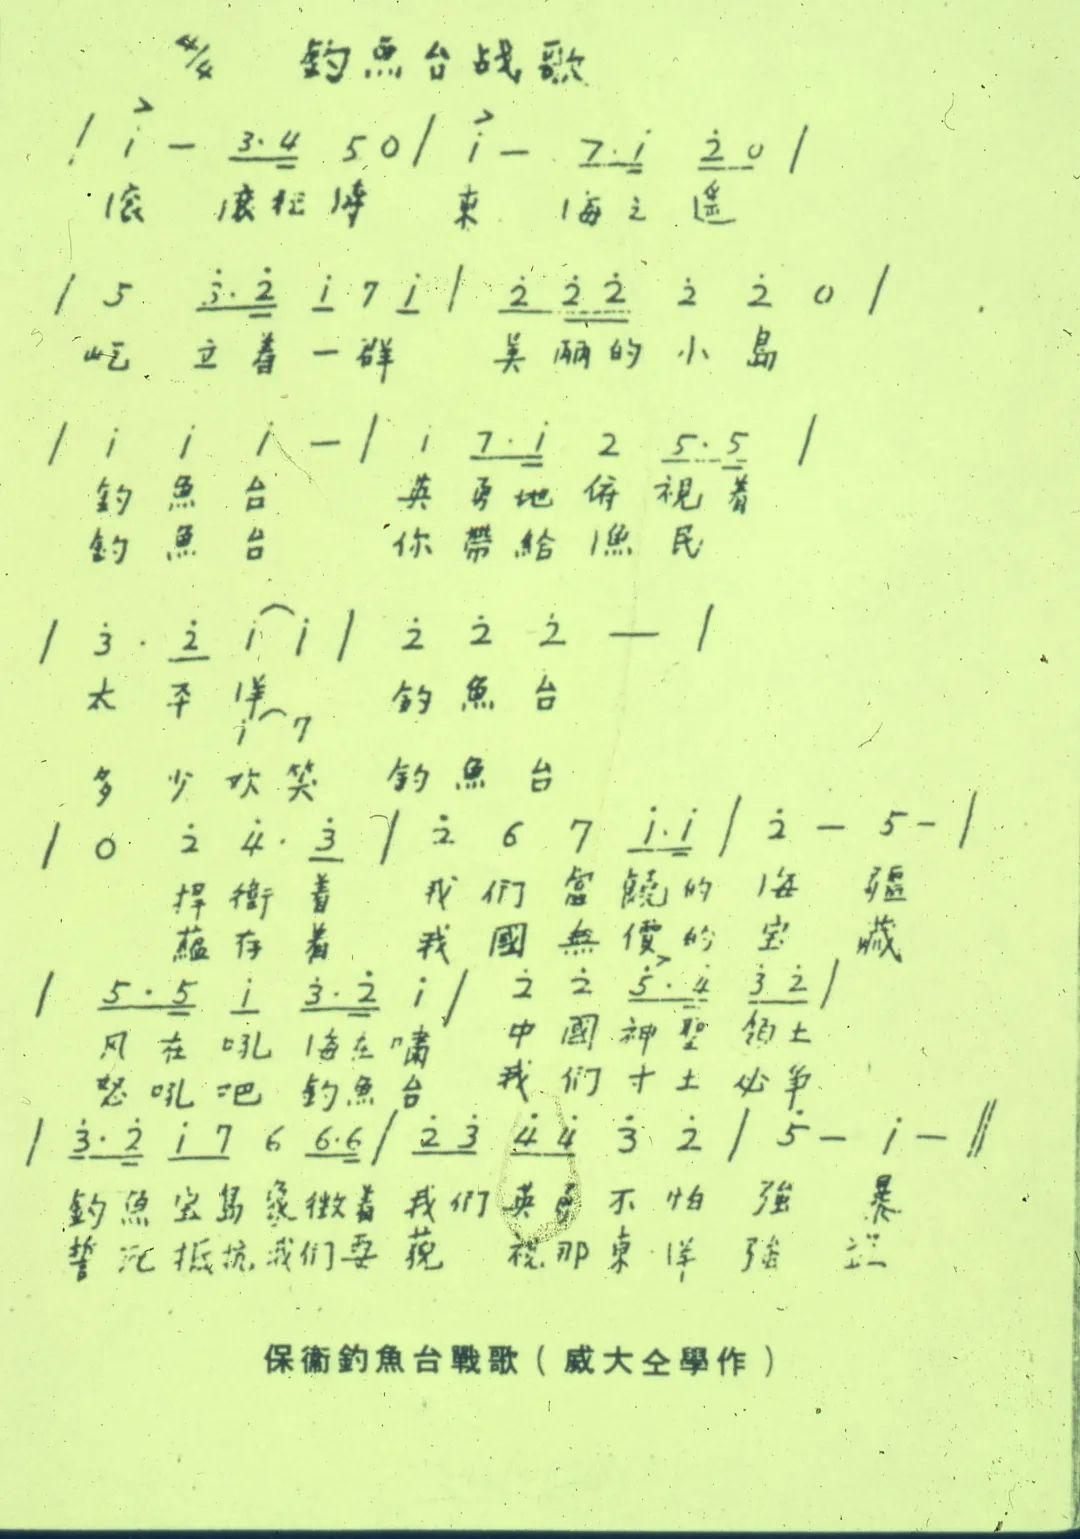 4/4 釣魚台战歌
| i - 3·4 5 0 | i - 7·i 2 0 |
滾 滾 東 海之遥
| 5 3·2 i 7 i | 2 2 2 2 2 0 |
屹 立着一群 美丽的小島
| i i i - | i 7·i 2 5·5 |
釣魚台 英勇地俯視着
釣魚台 你帶給漁民
| 3 · 2 i i | 2 2 2 — |
太平洋 釣魚台
i 7
多少欢笑 釣魚台
| 0 2 4 · 3 | 2 6 7 i·i | 2 - 5 - |
捍衛着 我們富饒的海疆
蘊存着 我國無價的宝藏
| 5·5 i 3·2 i | 2 2 5·4 3 2 |
风在吼海在嘯 中國神聖領土
怒吼吧釣魚台 我們寸土必争
| 3·2 i 7 6 6·6 | 2 3 4 4 3 2 | 5 - i - ||
釣魚宝島象徵着我們英勇不怕強暴
誓死抵抗我们要藐視那東洋強
保衞釣魚台戰歌（威大仝學作）